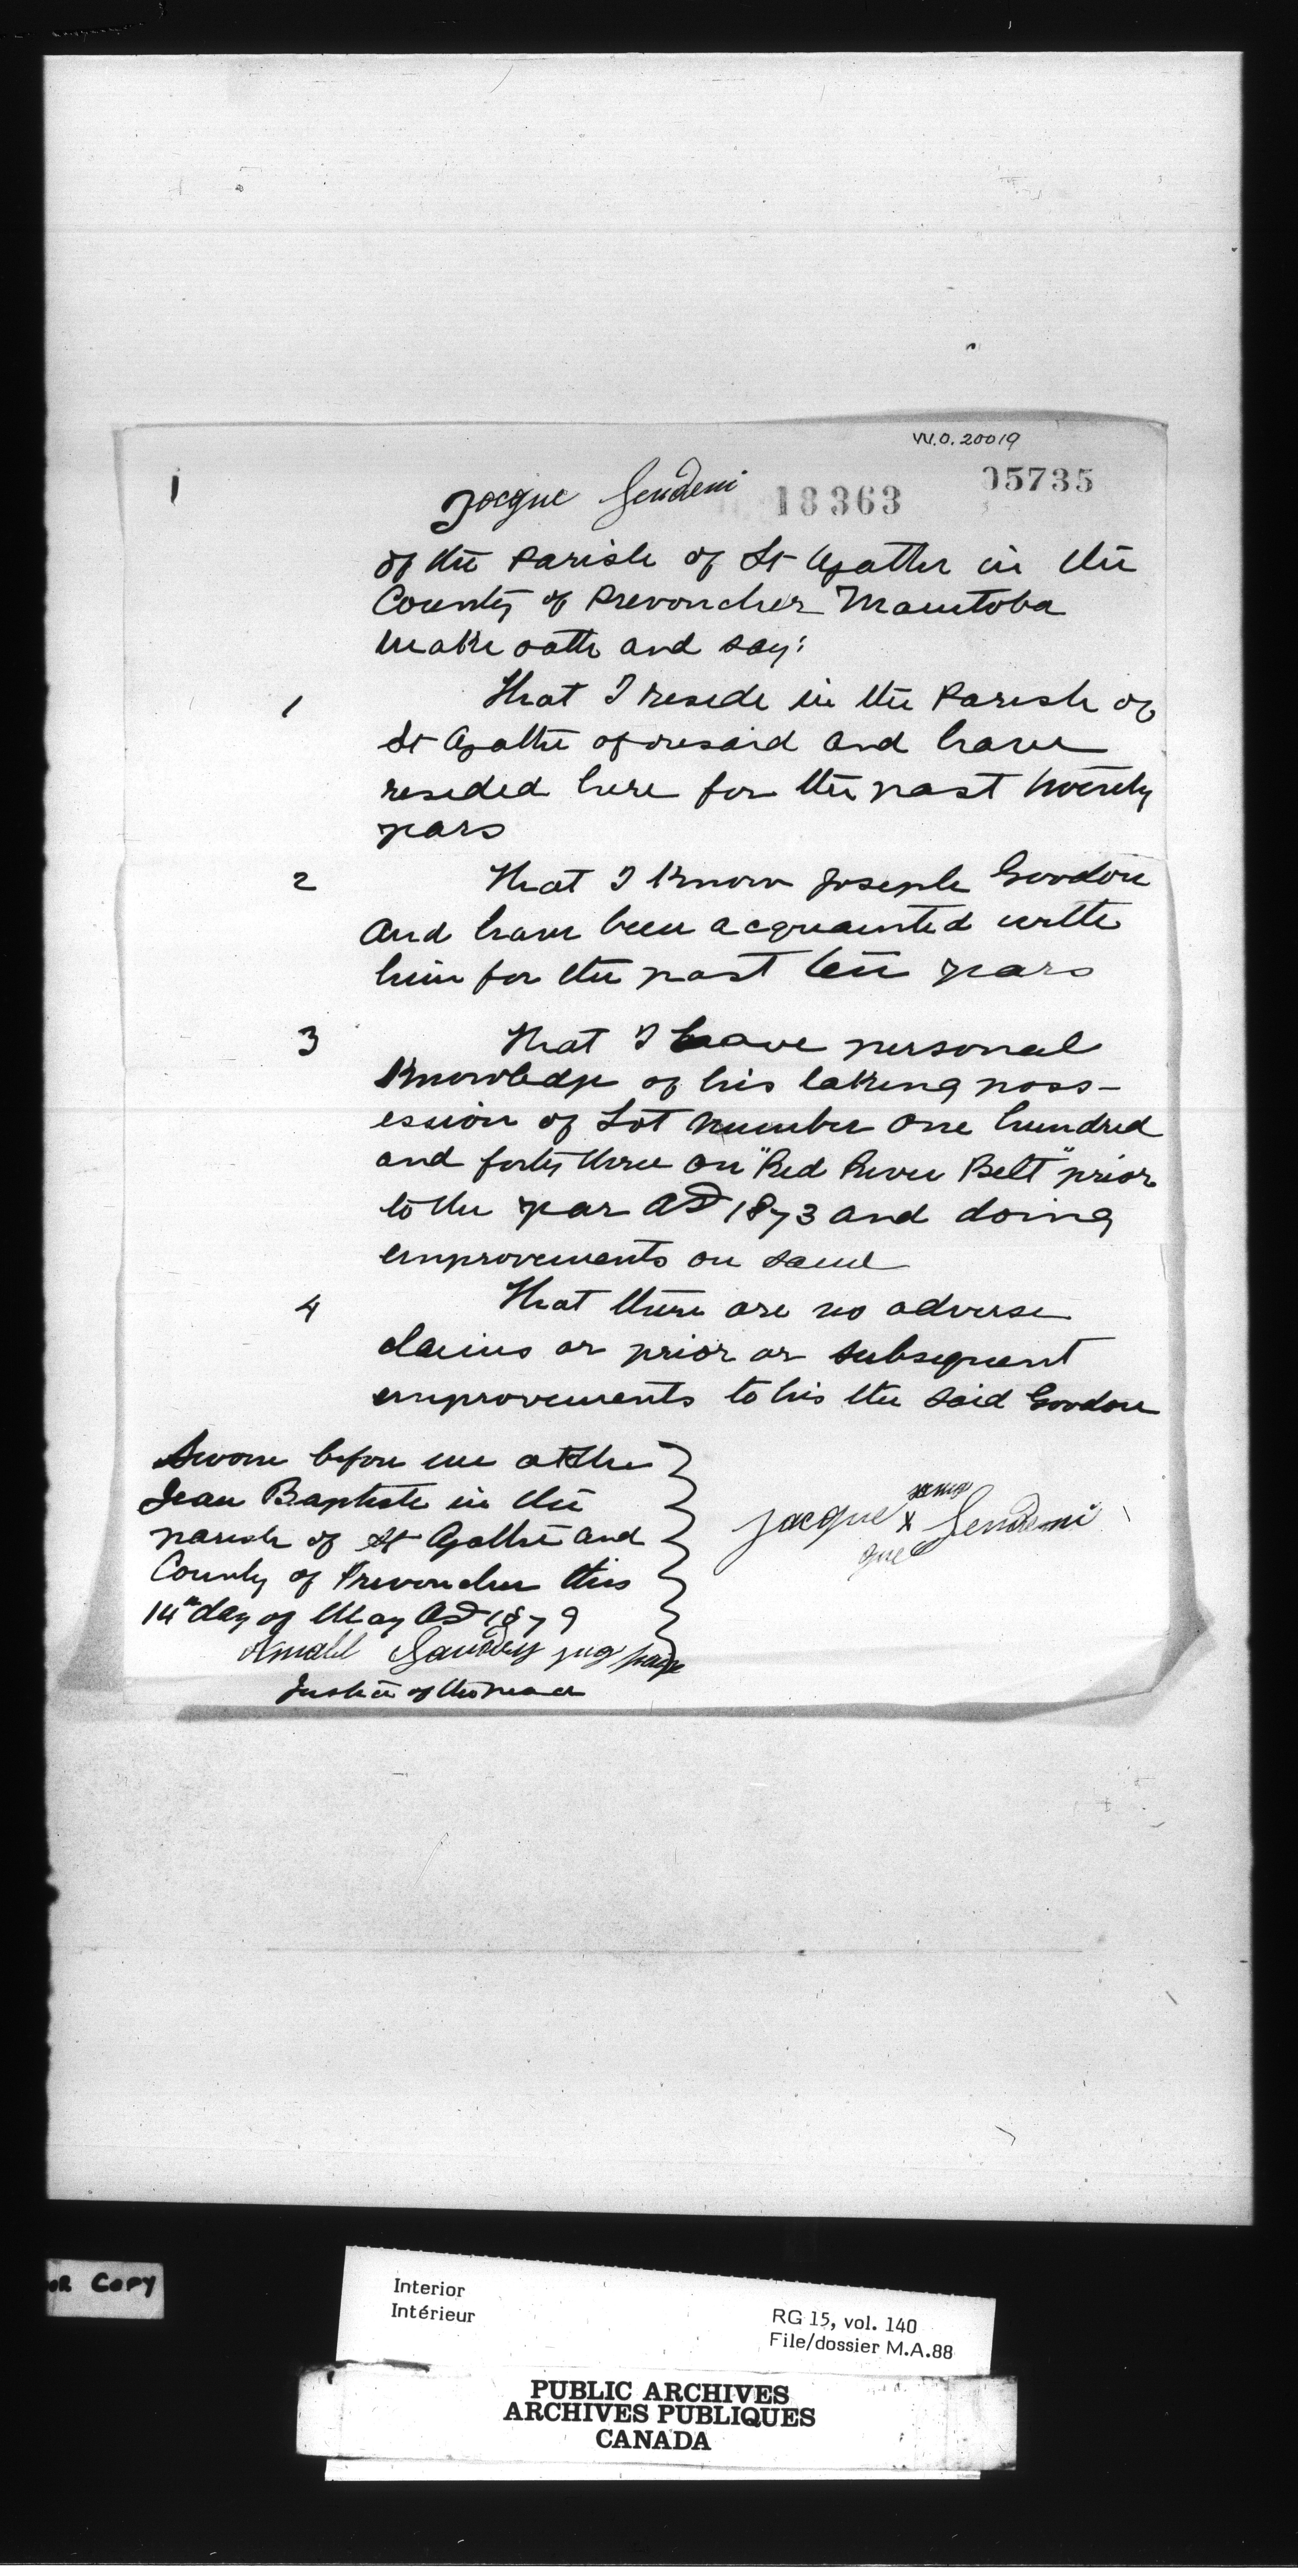 W.O. 20019
I Jacque Gendemi 18363 05735
of the Parish of St Agathe in the
County of Provencher Manitoba
make oath and say:
1 That I reside in the Parish of
St Agathe aforesaid and have
resided here for the past twenty
years
2 That I know Joseph Goodon
And have been acquainted with
him for the past ten years
3 That I have personal
Knowledge of his taking poss-
ession of Lot number one hundred
and forty three on "Red River Belt" prior
to the year AD 1873 and doing
improvements on same
4 That there are no adverse
claims or prior or subsequent
improvements to his the said Goodon
Sworn before me at the
Jean Baptiste in the
parish of St Agathe and
County of Provencher this
14th day of May AD 1879
Jacque x Gendemi
Justice of the peace
OR COPY
Interior
Intérieur
RG 15, vol. 140
File/dossier M.A.88
PUBLIC ARCHIVES
ARCHIVES PUBLIQUES
CANADA